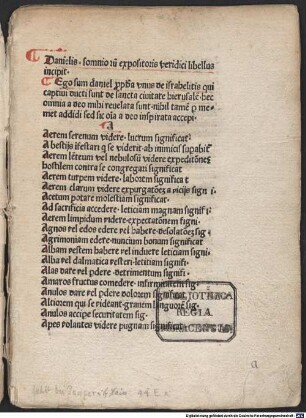 Danielis somniorũ expositoris veridici libellus
incipit.
Ego sum daniel ꝓpħa vnus de israhelitis qui
captiui ducti sunt de sancta ciuitate hierusalē. hec
omnia a deo mihi reuelata sunt. nihil tamē ꝑ me
met addidi sed ſic oĩa a deo inspirata accepi.
A
Aerem serenum videre. lucrum significat
A bestijs infestari q̃ se viderit ab inimicis supabit᷑
Aerem letum vel nebulosũ videre expeditiones
hostilem contra se congregari significat
Aerem turpem videre. laborem significat
Aerem clarum videre expurgatões a vicijs signi
Acetum potare molestiam significat.
Ad sacrificia accedere. leticiam magnam signifi
Aerem limpidum videre. expectatõnem signi
Agnos vel edos edere vel habere. desolatões sig
Agrimoniam edere. nuncium bonum significat
Albam vestem habere vel induere leticiam signi
Alba vel dalmatica vestiri. letitiam signifi
Alas dare vel pdere. detrimentum signifi
Amaros fructus comedere. infirmitatem sig
Anulos dare vel pdere dolorem signi
Altiorem qui se rideant granem languorẽ sig
Anulos accipe securitatem sig
Apes volantes videre pugnam significat
BIBLIOTHECA
REGIA
MONACENSIS
a